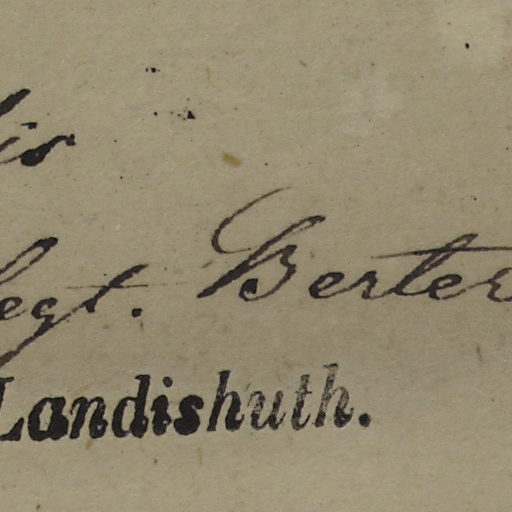 legt. Berter
Landishuth.